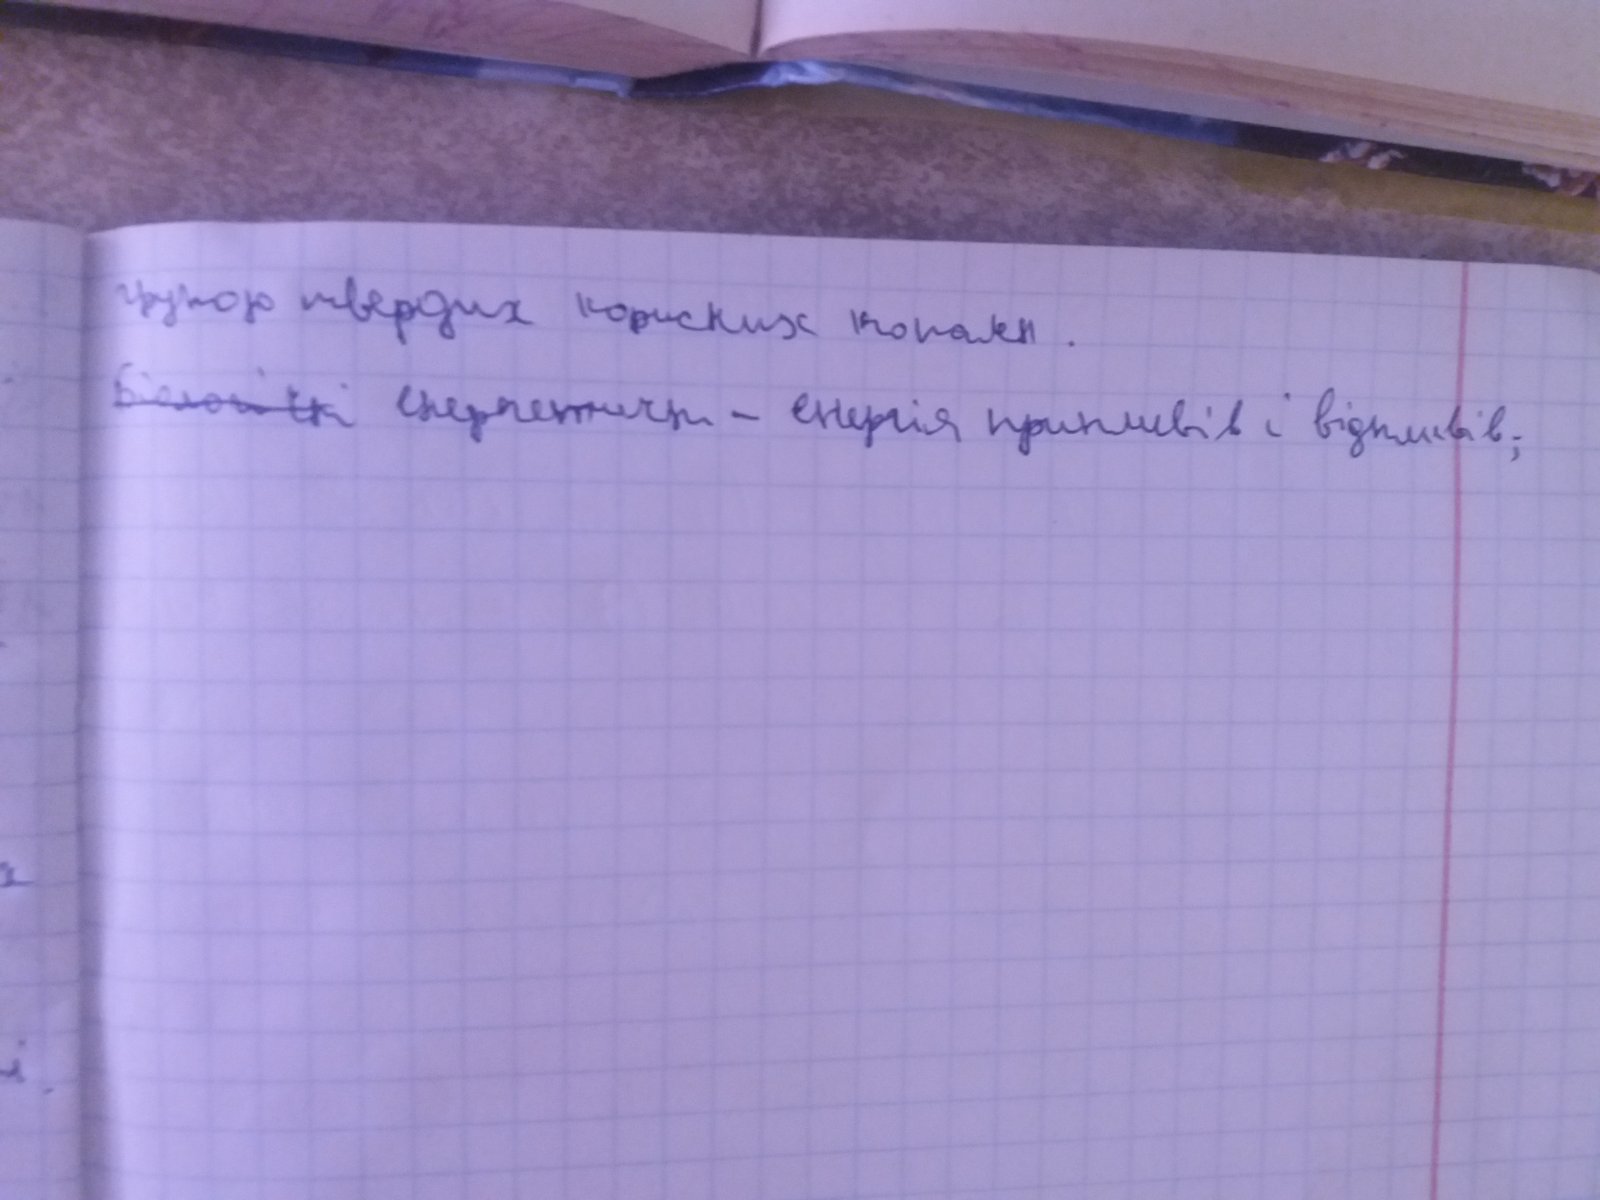 групою твердих корисних копалин.
Біологічні енергетичні - енергія припливів і відпливів;